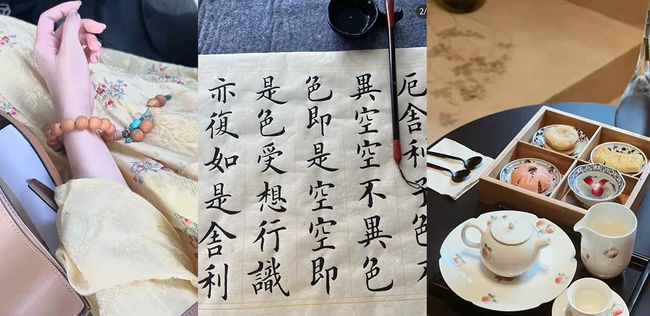 厄舍利子色不
異空空不異色
色即是空空即
是色受想行識
亦復如是舍利
2/